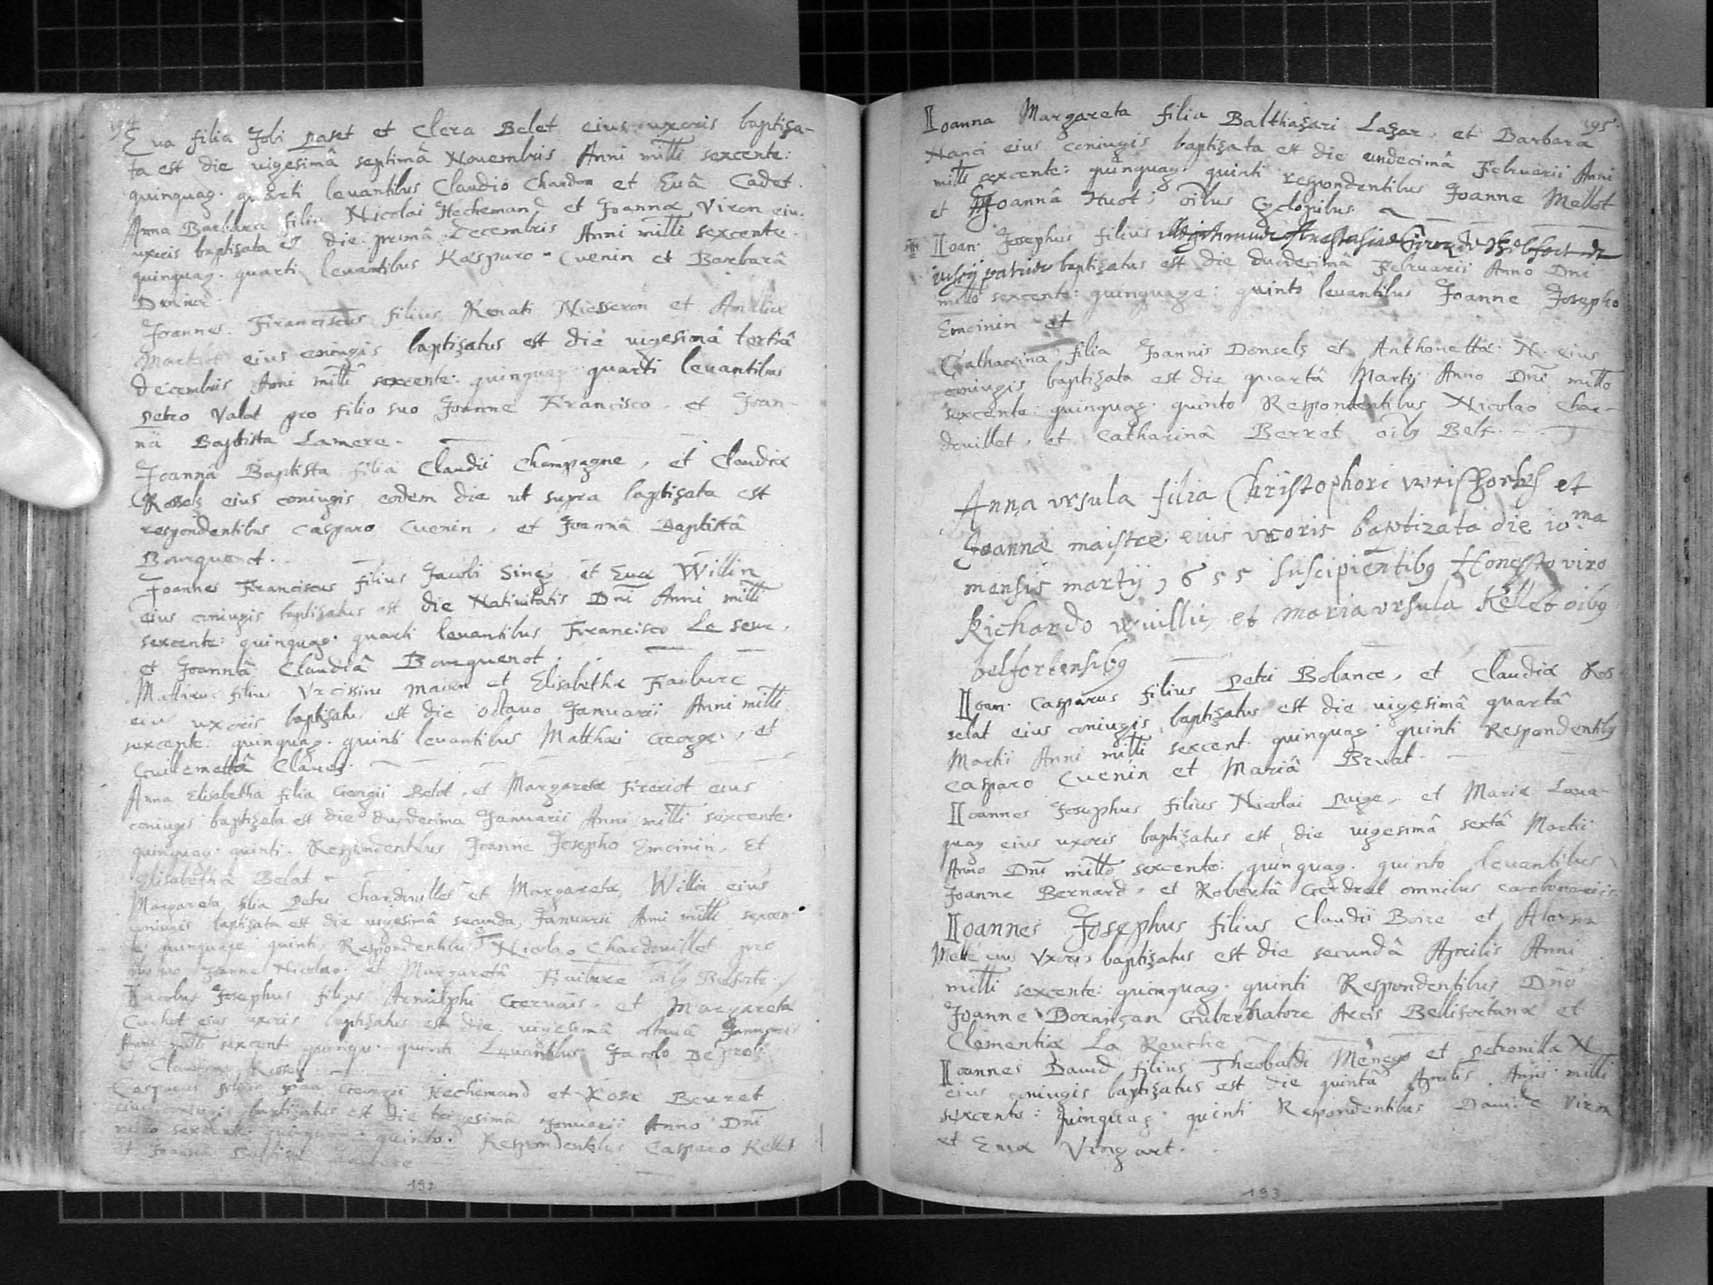 194
Eva filia Jobi paset et Clera Belet eius uxoris baptiza-
ta est die uigesimâ septimâ Nouembris Anni milli sexcente:
quinquag. quarti leuantibus Claudio Chardon et Euâ Cadet.
Anna Barbara filia Nicolai Hechemand et Joannæ Viron eiu.
uxoris baptizata est die primâ Decembris Anni milli sexcente.
quinquag. quarti leuantibus Kasparo Cuenin et Barbarâ
Joannes Franciscus filius Renati Niesseron et
eius coniugis baptizatus est die uigesimâ tertiâ
Decembris Anni milli sexcente: quinquag. quarti leuantibus
petro Valat pro filio suo Joanne Francisco. et Joan-
nâ Baptista Lamere.
Joanna Baptista filia Claudii Champagne, et Claudiæ
eius coniugis eodem die ut supra baptizata est
respondentibus Casparo Cuenin, et Joannâ Baptistâ
Bourquenot.
Joannes Franciscus filius Jacobi Sing et Euæ Willin
eius coniugis baptizatus est die Natiuitatis Dni Anni milli
sexcente: quinquag. quarti leuantibus Francisco Le seur.
et Joannâ Claudiâ Bourquenot.
filius Vrcissini et Elisabethæ Faibure
eiu uxoris baptizatu. est die octauo Januarii Anni milli
sexcente: quinquag. quinti leuantibus Matthæi George, et
Guilemettâ Clauey.
Anna Elisabetha filia Georgii Belot, et Margaretæ Freriot eius
coniugis baptizata est die duodecima Januarii Anni milli sexcente.
quinquag. quinti. Respondentibus Joanne Josepho Emoinin. Et
Elisabethâ Belat
Margareta filia petri Chardouillet et Margareta Willin eius
coniugis baptizata est die uigesimâ secunda, Januarii Anni milli sexcen-
te quinquage quinti Respondentibus Nicolao Chardouillet pro
Joanne Nicolao. et Margaretâ Faibure
Jacobus Josephus filius Arnulphi Geruais. et Margareta
eius uxoris baptizatus est die uigesimâ octauâ Januarii
Anni milli sexcent quinqu. quinti Leuantibus Jacobo
et Claudina
Casparus filius Georgii Hechemand et Rosæ Beuret
eius coniugis baptizatus est die Januarii Anno Dni
millo sexcente: quinquag. quinto. Respondentibus Casparo Keller
et Joannâ Baptista Lamere
192
195
Ioanna Margareta filia Balthazari Lazar. et Barbara
Nanci eius coniugis baptizata est die undecimâ Februarii Anni
milli sexcente: quinquag. quinti respondentibus Joanne Mellot
et Joannâ Huot;
Ioan. Josephus filius
baptizatus est die duodecimâ Februarii Anno Dni
millo sexcente: quinquage: quinto leuantibus Joanne Josepho
Emoinin et
Catharina filia Joannis Donsels et Anthonettæ. N. eius
coniugis baptizata est die quartâ Martij Anno Dni millo
sexcente: quinquag. quinto Respondentibus Nicolao Char-
douillet, et Catharinâ Berret oibg Belf.
Anna vrsula filia Christophori et
Joannæ maistre eius vxoris baptizata die 10ma
mensis martij 1655 suscipientibg Honesto viro
Richardo wuillig et maria vrsula Keller oibg
belfortensibg
Ioan. Casparus filius petri Bolance, et Claudiæ Ros
selat eius coniugis baptizatus est die uigesimâ quartâ
Martii Anni milli sexcent. quinquag. quinti Respondentibg
Casparo Cuenin et Mariâ Bruat.
Ioannes Josephus filius Nicolai paige, et Mariæ Loua-
quag eius uxoris baptizatus est die uigesimâ sextâ Martii
Anno Dni millo sexcente: quinquag. quinto leuantibus
Joanne Bernard, et Robertâ Gerdrat omnibus carbonariis.
Ioannes Josephus filius Claudii Boire et
Metté eius Vxoris baptizatus est die secundâ Aprilis Anni
milli sexcente: quinquag. quinti Respondentibus Dno
Joanne Dorançan Gubernatore Arcis Bellifortanæ et
Clementiæ La Reuche
Ioannes Dauid filius Theobaldi Mengs et petronilla N
eius coniugis baptizatus est die quintâ Aprilis. Anni milli
sexcente: quinquag. quinti Respondentibus Dauide Viron
et Eua Vingart.
193